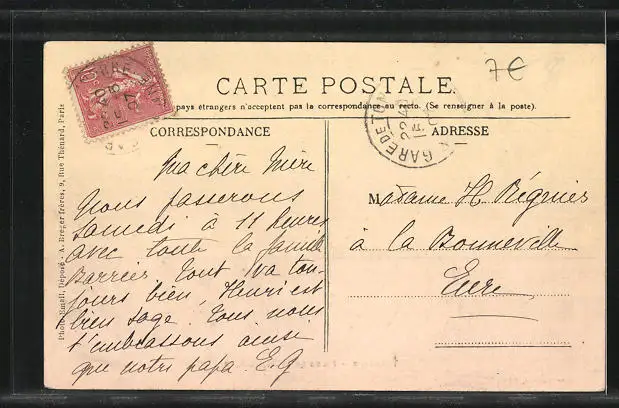 7€
CARTE POSTALE
pays étrangers n'acceptent pas la correspondance au recto. (Se renseigner à la poste).
CORRESPONDANCE
ADRESSE
Photo Email, Déposé - A. Breger frères, 9, Rue Thénard, Paris
GARE DE
22 40
Ma chère Mère
Nous passerons
samedi à 11 heures
avec toute la famille
Barrier. Tout va tou-
jours bien, Henri est
bien sage. Tous nous
t'embrassons ainsi
que notre papa. E.G
Madame H. Régnier
à la Bonneville
Eure